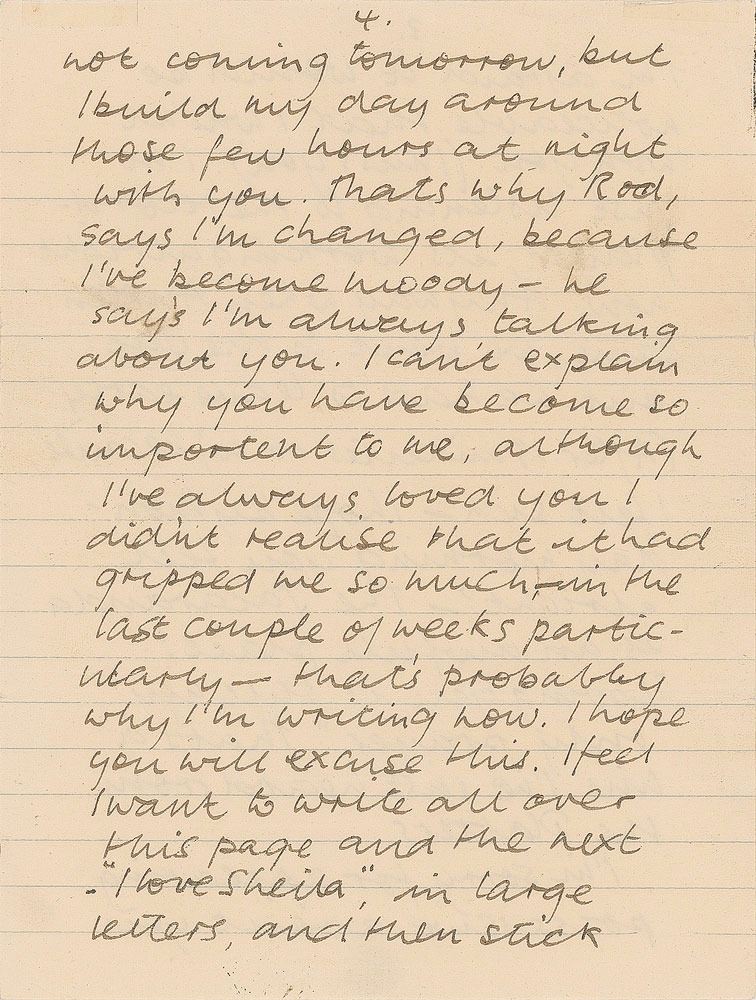 4.
not coming tomorrow, but
I build my day around
those few hours at night
with you. Thats why Rod,
says I'm changed, because
I've become moody – he
say's I'm always talking
about you. I can't explain
why you have become so
importent to me, although
I've always loved you I
did'nt realise that it had
gripped me so much, – in the
last couple of weeks partic-
ularly — that's probably
why I'm writing now. I hope
you will excuse this. I feel
I want to write all over
this page and the next
"I love Sheila", in large
letters, and then stick